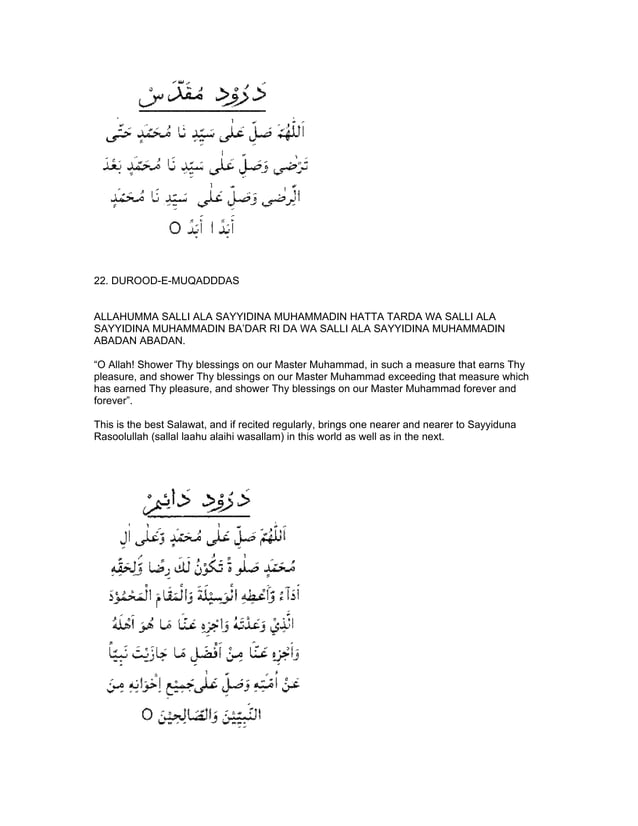 دَرُوْدِ مُقَدَّسْ
اَللّٰهُمَّ صَلِّ عَلٰى سَيِّدِ نَا مُحَمَّدٍ حَتّٰى
تَرْضٰى وَصَلِّ عَلٰى سَيِّدِ نَا مُحَمَّدٍ بَعْدَ
الرِّضٰى وَصَلِّ عَلٰى سَيِّدِ نَا مُحَمَّدٍ
أَبَدًا أَبَدًا O
22. DUROOD-E-MUQADDDAS
ALLAHUMMA SALLI ALA SAYYIDINA MUHAMMADIN HATTA TARDA WA SALLI ALA
SAYYIDINA MUHAMMADIN BA’DAR RI DA WA SALLI ALA SAYYIDINA MUHAMMADIN
ABADAN ABADAN.
“O Allah! Shower Thy blessings on our Master Muhammad, in such a measure that earns Thy
pleasure, and shower Thy blessings on our Master Muhammad exceeding that measure which
has earned Thy pleasure, and shower Thy blessings on our Master Muhammad forever and
forever”.
This is the best Salawat, and if recited regularly, brings one nearer and nearer to Sayyiduna
Rasoolullah (sallal laahu alaihi wasallam) in this world as well as in the next.
دَرُوْدِ دَائِمْ
اَللّٰهُمَّ صَلِّ عَلٰى مُحَمَّدٍ وَّعَلٰى اٰلِ
مُحَمَّدٍ صَلٰوةً تَكُوْنُ لَكَ رِضًا وَّلِحَقِّهٖ
اَدَآءً وَّاَعْطِهِ الْوَسِيْلَةَ وَالْمَقَامَ الْمَحْمُوْدَ
الَّذِيْ وَعَدْتَهٗ وَاجْزِهٖ عَنَّا مَا هُوَ اَهْلُهٗ
وَاجْزِهٖ عَنَّا مِنْ اَفْضَلِ مَا جَازَيْتَ نَبِيًّا
عَنْ اُمَّتِهٖ وَصَلِّ عَلٰى جَمِيْعِ اِخْوَانِهٖ مِنَ
النَّبِيِّيْنَ وَالصَّالِحِيْنَ O